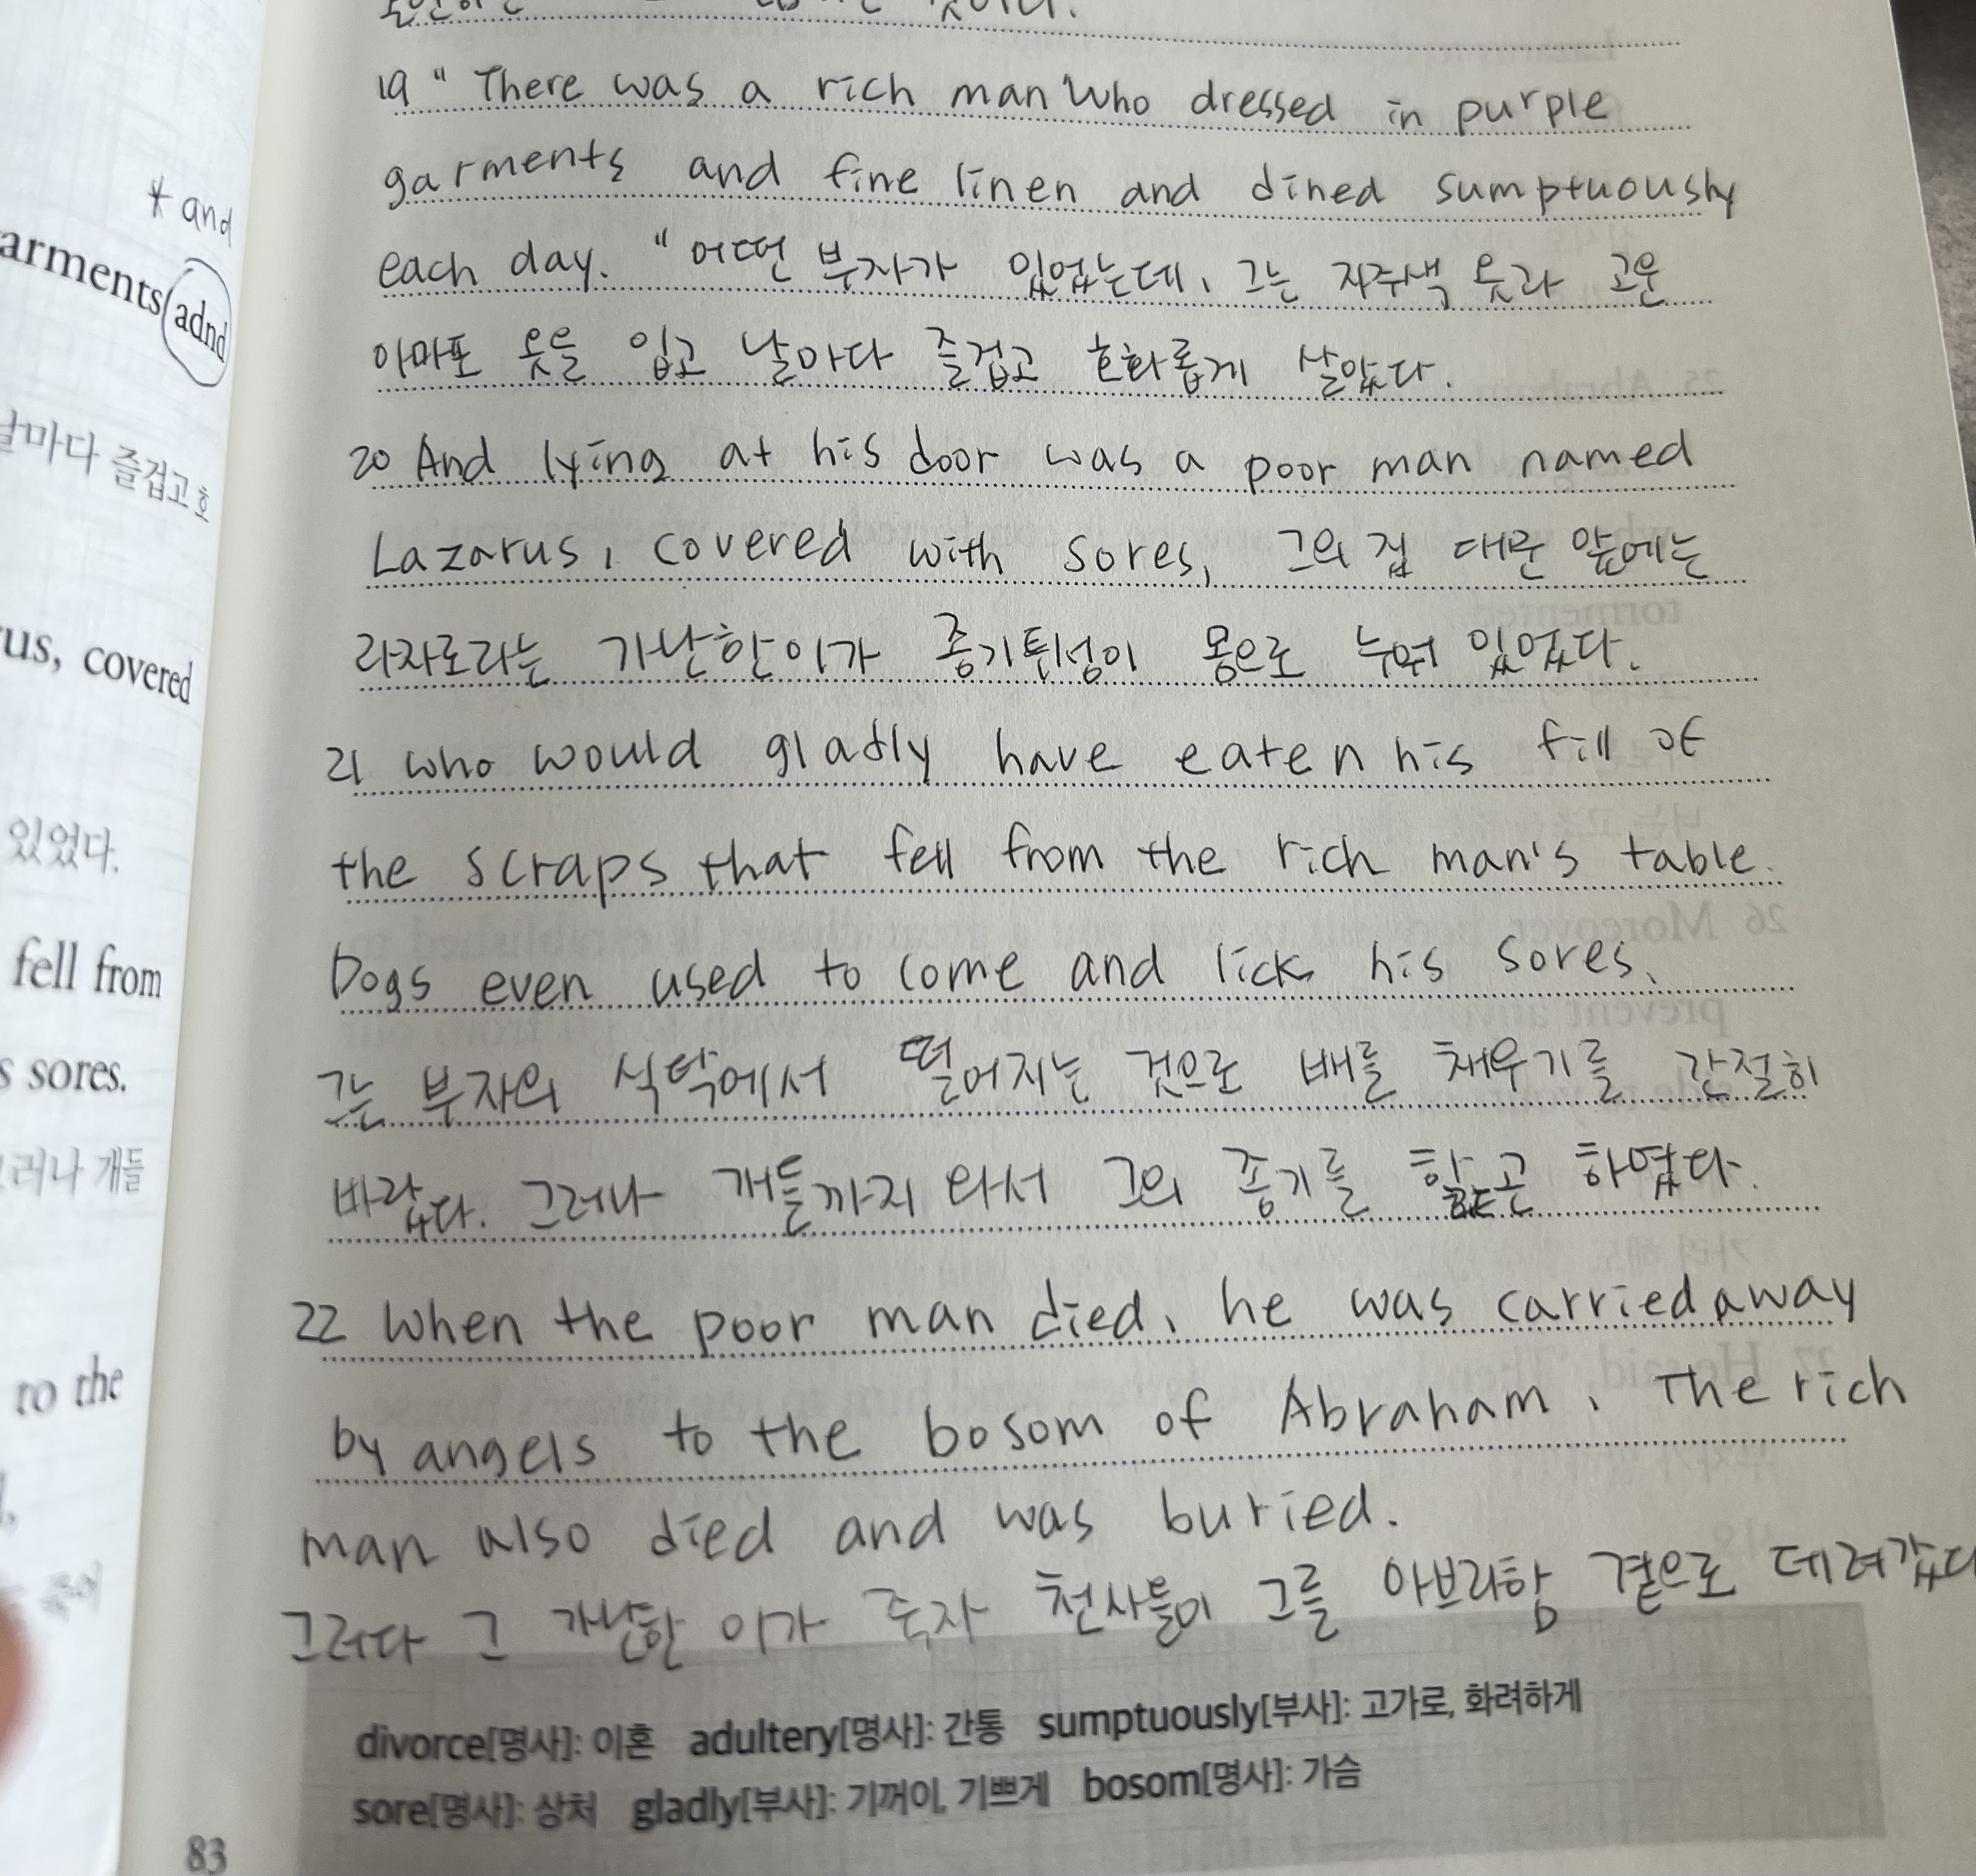 * and
arments adnd
날마다 즐겁고 호
us, covered
있었다.
fell from
s sores.
러나 개들
to the
19 " There was a rich man who dressed in purple
garments and fine linen and dined sumptuously
each day. " 어떤 부자가 있었는데, 그는 자주색 옷과 고운
아마포 옷을 입고 날마다 즐겁고 호화롭게 살았다.
20 And lying at his door was a poor man named
Lazarus, covered with sores, 그의 집 대문 앞에는
라자로라는 가난한 이가 종기투성이 몸으로 누워 있었다.
21 who would gladly have eaten his fill of
the scraps that fell from the rich man's table.
Dogs even used to come and lick his sores.
그는 부자의 식탁에서 떨어지는 것으로 배를 채우기를 간절히
바랐다. 그러나 개들까지 와서 그의 종기를 핥곤 하였다.
22 When the poor man died, he was carried away
by angels to the bosom of Abraham. The rich
man also died and was buried.
그러다 그 가난한 이가 죽자 천사들이 그를 아브라함 곁으로 데려갔다
divorce[명사]: 이혼 adultery[명사]: 간통 sumptuously[부사]: 고가로, 화려하게
sore[명사]: 상처 gladly[부사]: 기꺼이, 기쁘게 bosom[명사]: 가슴
83